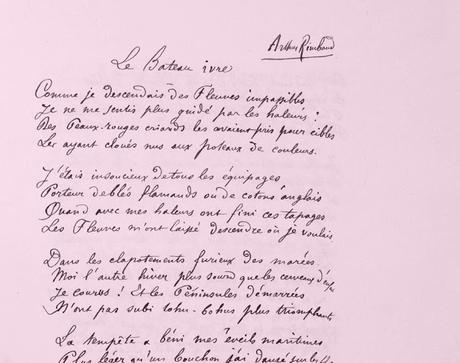 Arthur Rimbaud
Le Bateau ivre
Comme je descendais des Fleuves impassibles
Je ne me sentis plus guidé par les haleurs !
Des Peaux-rouges criards les avaient pris pour cibles
Les ayant cloués nus aux poteaux de couleurs.
J'étais insoucieux de tous les équipages
Porteur de blés flamands ou de cotons anglais
Quand avec mes haleurs ont fini ces tapages
Les Fleuves m'ont laissé descendre où je voulais
Dans les clapotements furieux des marées.
Moi l'autre hiver plus sourd que les cerveaux d'
Je courus ! Et les Péninsules démarrées
N'ont pas subi tohu-bohus plus triomphants
La tempête a béni mes éveils maritimes
Plus léger qu'un bouchon j'ai dansé sur les